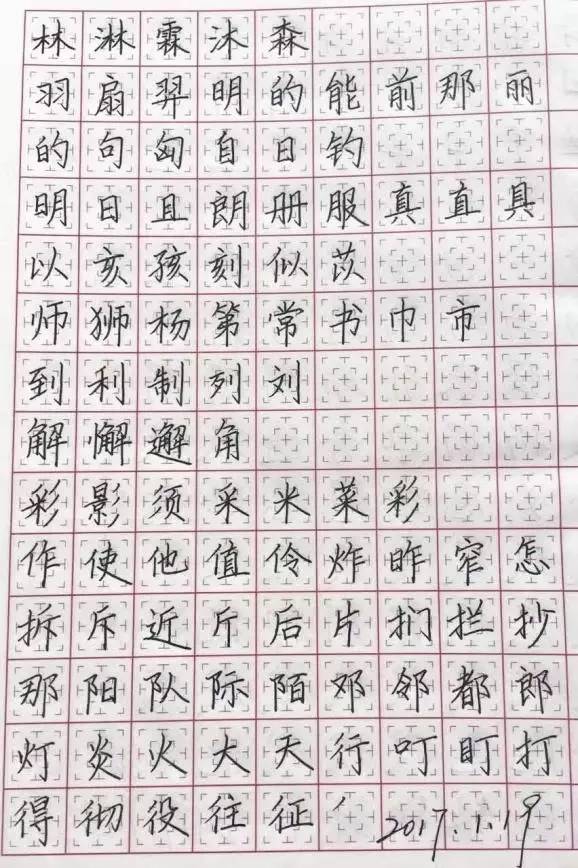 林淋霖沐森
羽扇羿明的能前那丽
的句匈自日钓
明日且朗册服真直具
以亥孩刻似苡
师狮杨第常书巾市
到利制列刘
解懈邂角
彩影须采米菜彩
作使他值伶炸昨窄怎
拆斥近斤后片扪拦抄
那阳队际陌邓邻都郎
灯炎火大天行叮盯打
得彻役往征 2017.1.19